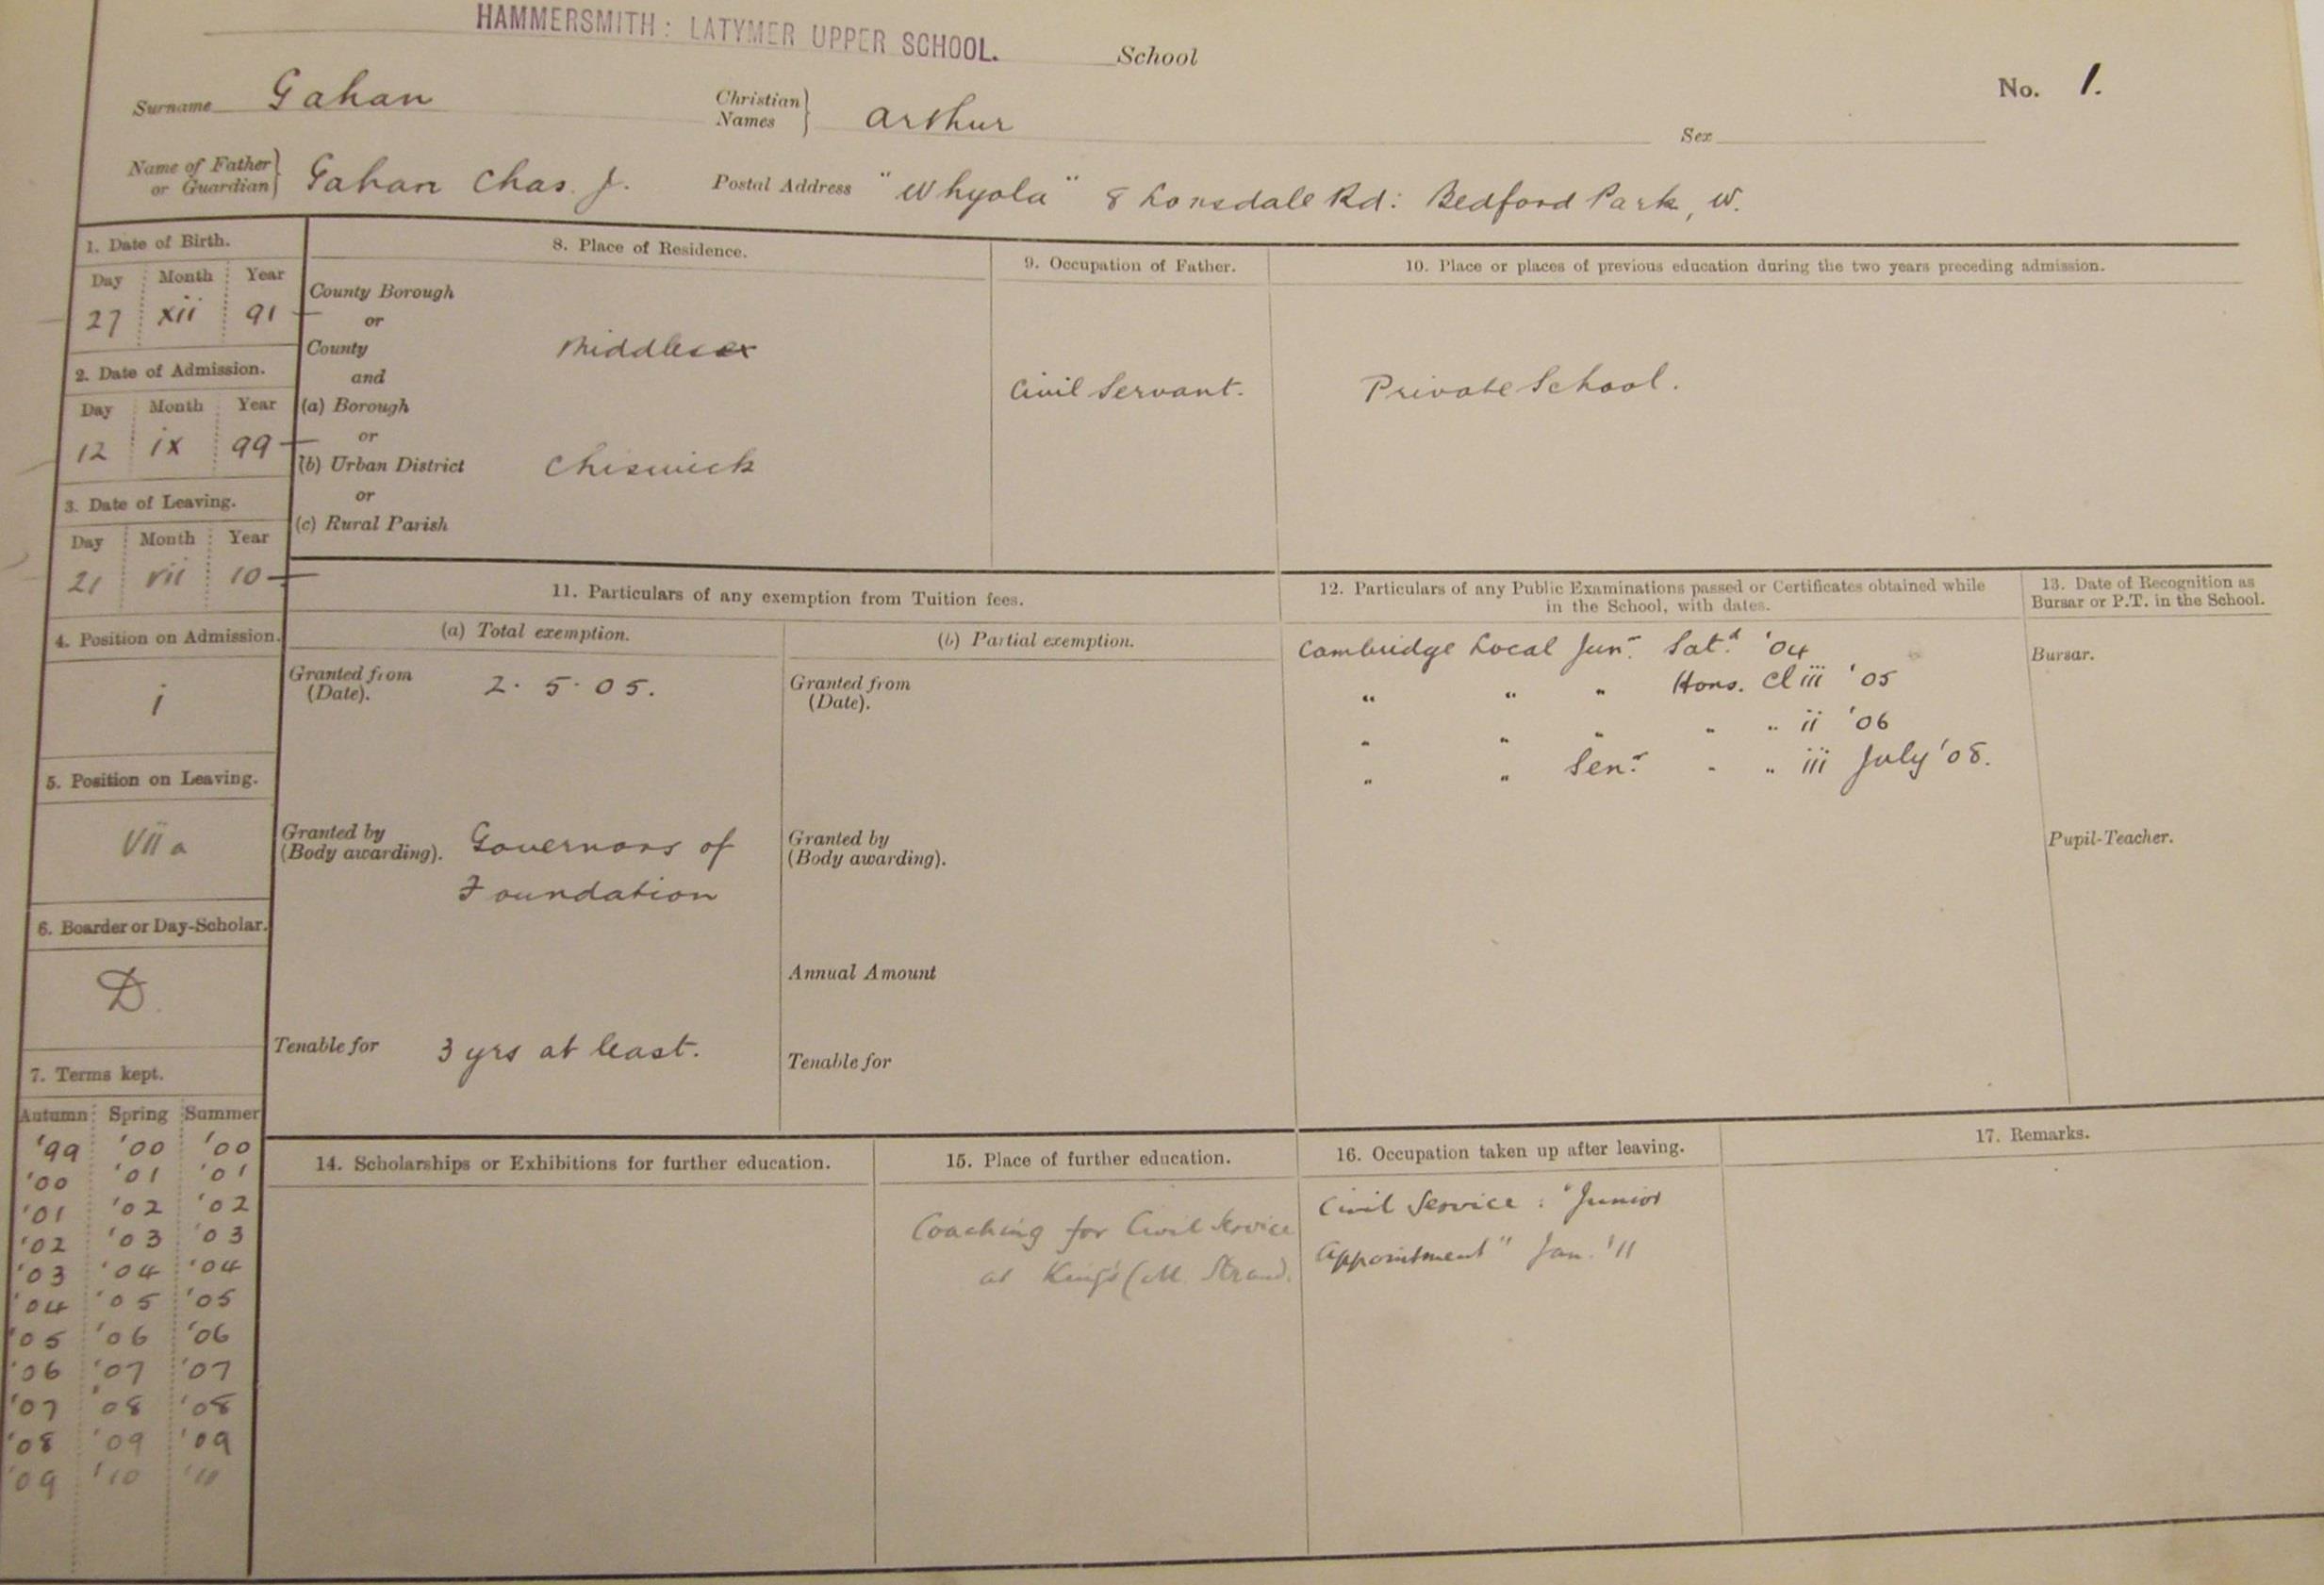 HAMMERSMITH: LATYMER UPPER SCHOOL. School
No. 1.
Surname Gahan Christian Names } Arthur Sex
Name of Father or Guardian } Gahan Chas. J. Postal Address "Whyola" 8 Lonsdale Rd: Bedford Park, W.
1. Date of Birth.
Day Month Year
27 xii 91
2. Date of Admission.
Day Month Year
12 ix 99
3. Date of Leaving.
Day Month Year
21 vii 10
4. Position on Admission.
i
5. Position on Leaving.
VII a
6. Boarder or Day-Scholar.
D.
7. Terms kept.
Autumn Spring Summer
'99 '00 '00
'00 '01 '01
'01 '02 '02
'02 '03 '03
'03 '04 '04
'04 '05 '05
'05 '06 '06
'06 '07 '07
'07 '08 '08
'08 '09 '09
'09 '10
8. Place of Residence.
County Borough
or
County Middlesex
and
(a) Borough
or
(b) Urban District Chiswick
or
(c) Rural Parish
9. Occupation of Father.
Civil Servant.
10. Place or places of previous education during the two years preceding admission.
Private School.
11. Particulars of any exemption from Tuition fees.
(a) Total exemption.
Granted from
(Date). 2. 5. 05.
Granted by
(Body awarding). Governors of
Foundation
Tenable for 3 yrs at least.
(b) Partial exemption.
Granted from
(Date).
Granted by
(Body awarding).
Annual Amount
Tenable for
12. Particulars of any Public Examinations passed or Certificates obtained while
in the School, with dates.
Cambridge Local Junr. Satd. '04
" " " Hons. Cl iii '05
" " " " " ii '06
" " Senr. " " iii July '08.
13. Date of Recognition as
Bursar or P.T. in the School.
Bursar.
Pupil-Teacher.
14. Scholarships or Exhibitions for further education.
15. Place of further education.
Coaching for Civil Service
at King's Strand.
16. Occupation taken up after leaving.
Civil Service: "Junior
Appointment" Jan. '11
17. Remarks.